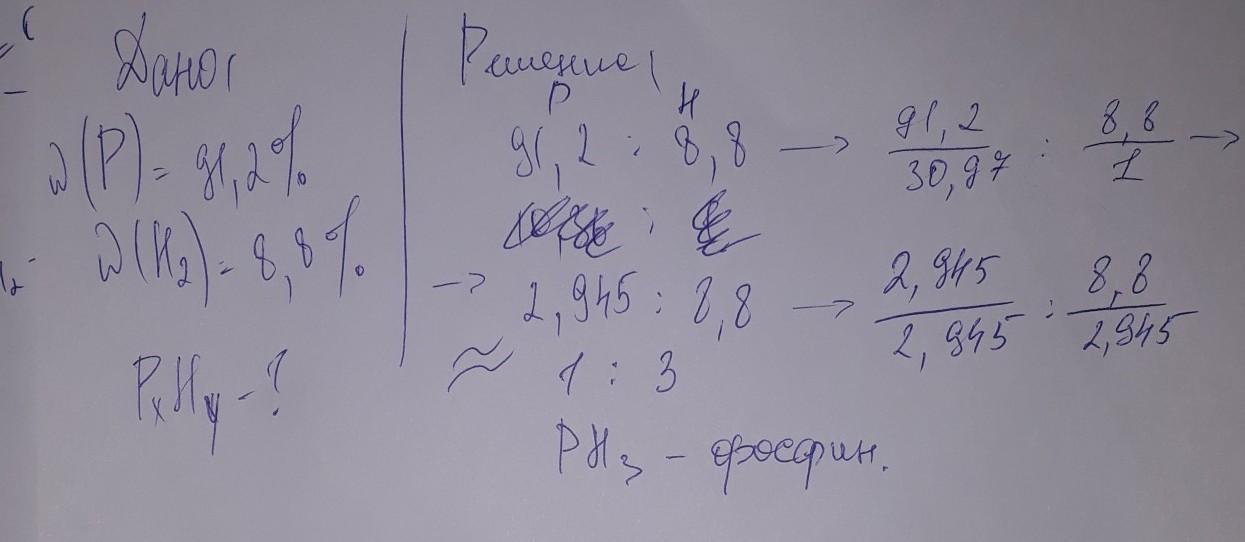 Дано:
W(P) = 91,2%
W(H₂) = 8,8%
PₓHᵧ - ?
Решение:
P H
91,2 : 8,8 → 91,2/30,97 : 8,8/1 →
→ 2,945 : 8,8 → 2,945/2,945 : 8,8/2,945
≈ 1 : 3
PH₃ - фосфин.